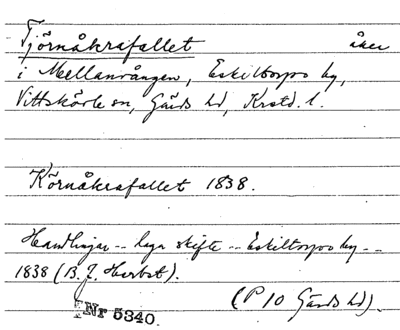 Tjörnåkrafallet åker
i Mellanvången, Eskiltorps by,
Vittskövle sn, Gärds hd, Krstd. l.
Körnåkrafallet 1838.
Handlingar -- laga skifte -- Eskiltorps by --
1838 (B. J. Herbst).
(P 10 Gärds hd).
Nr 5340